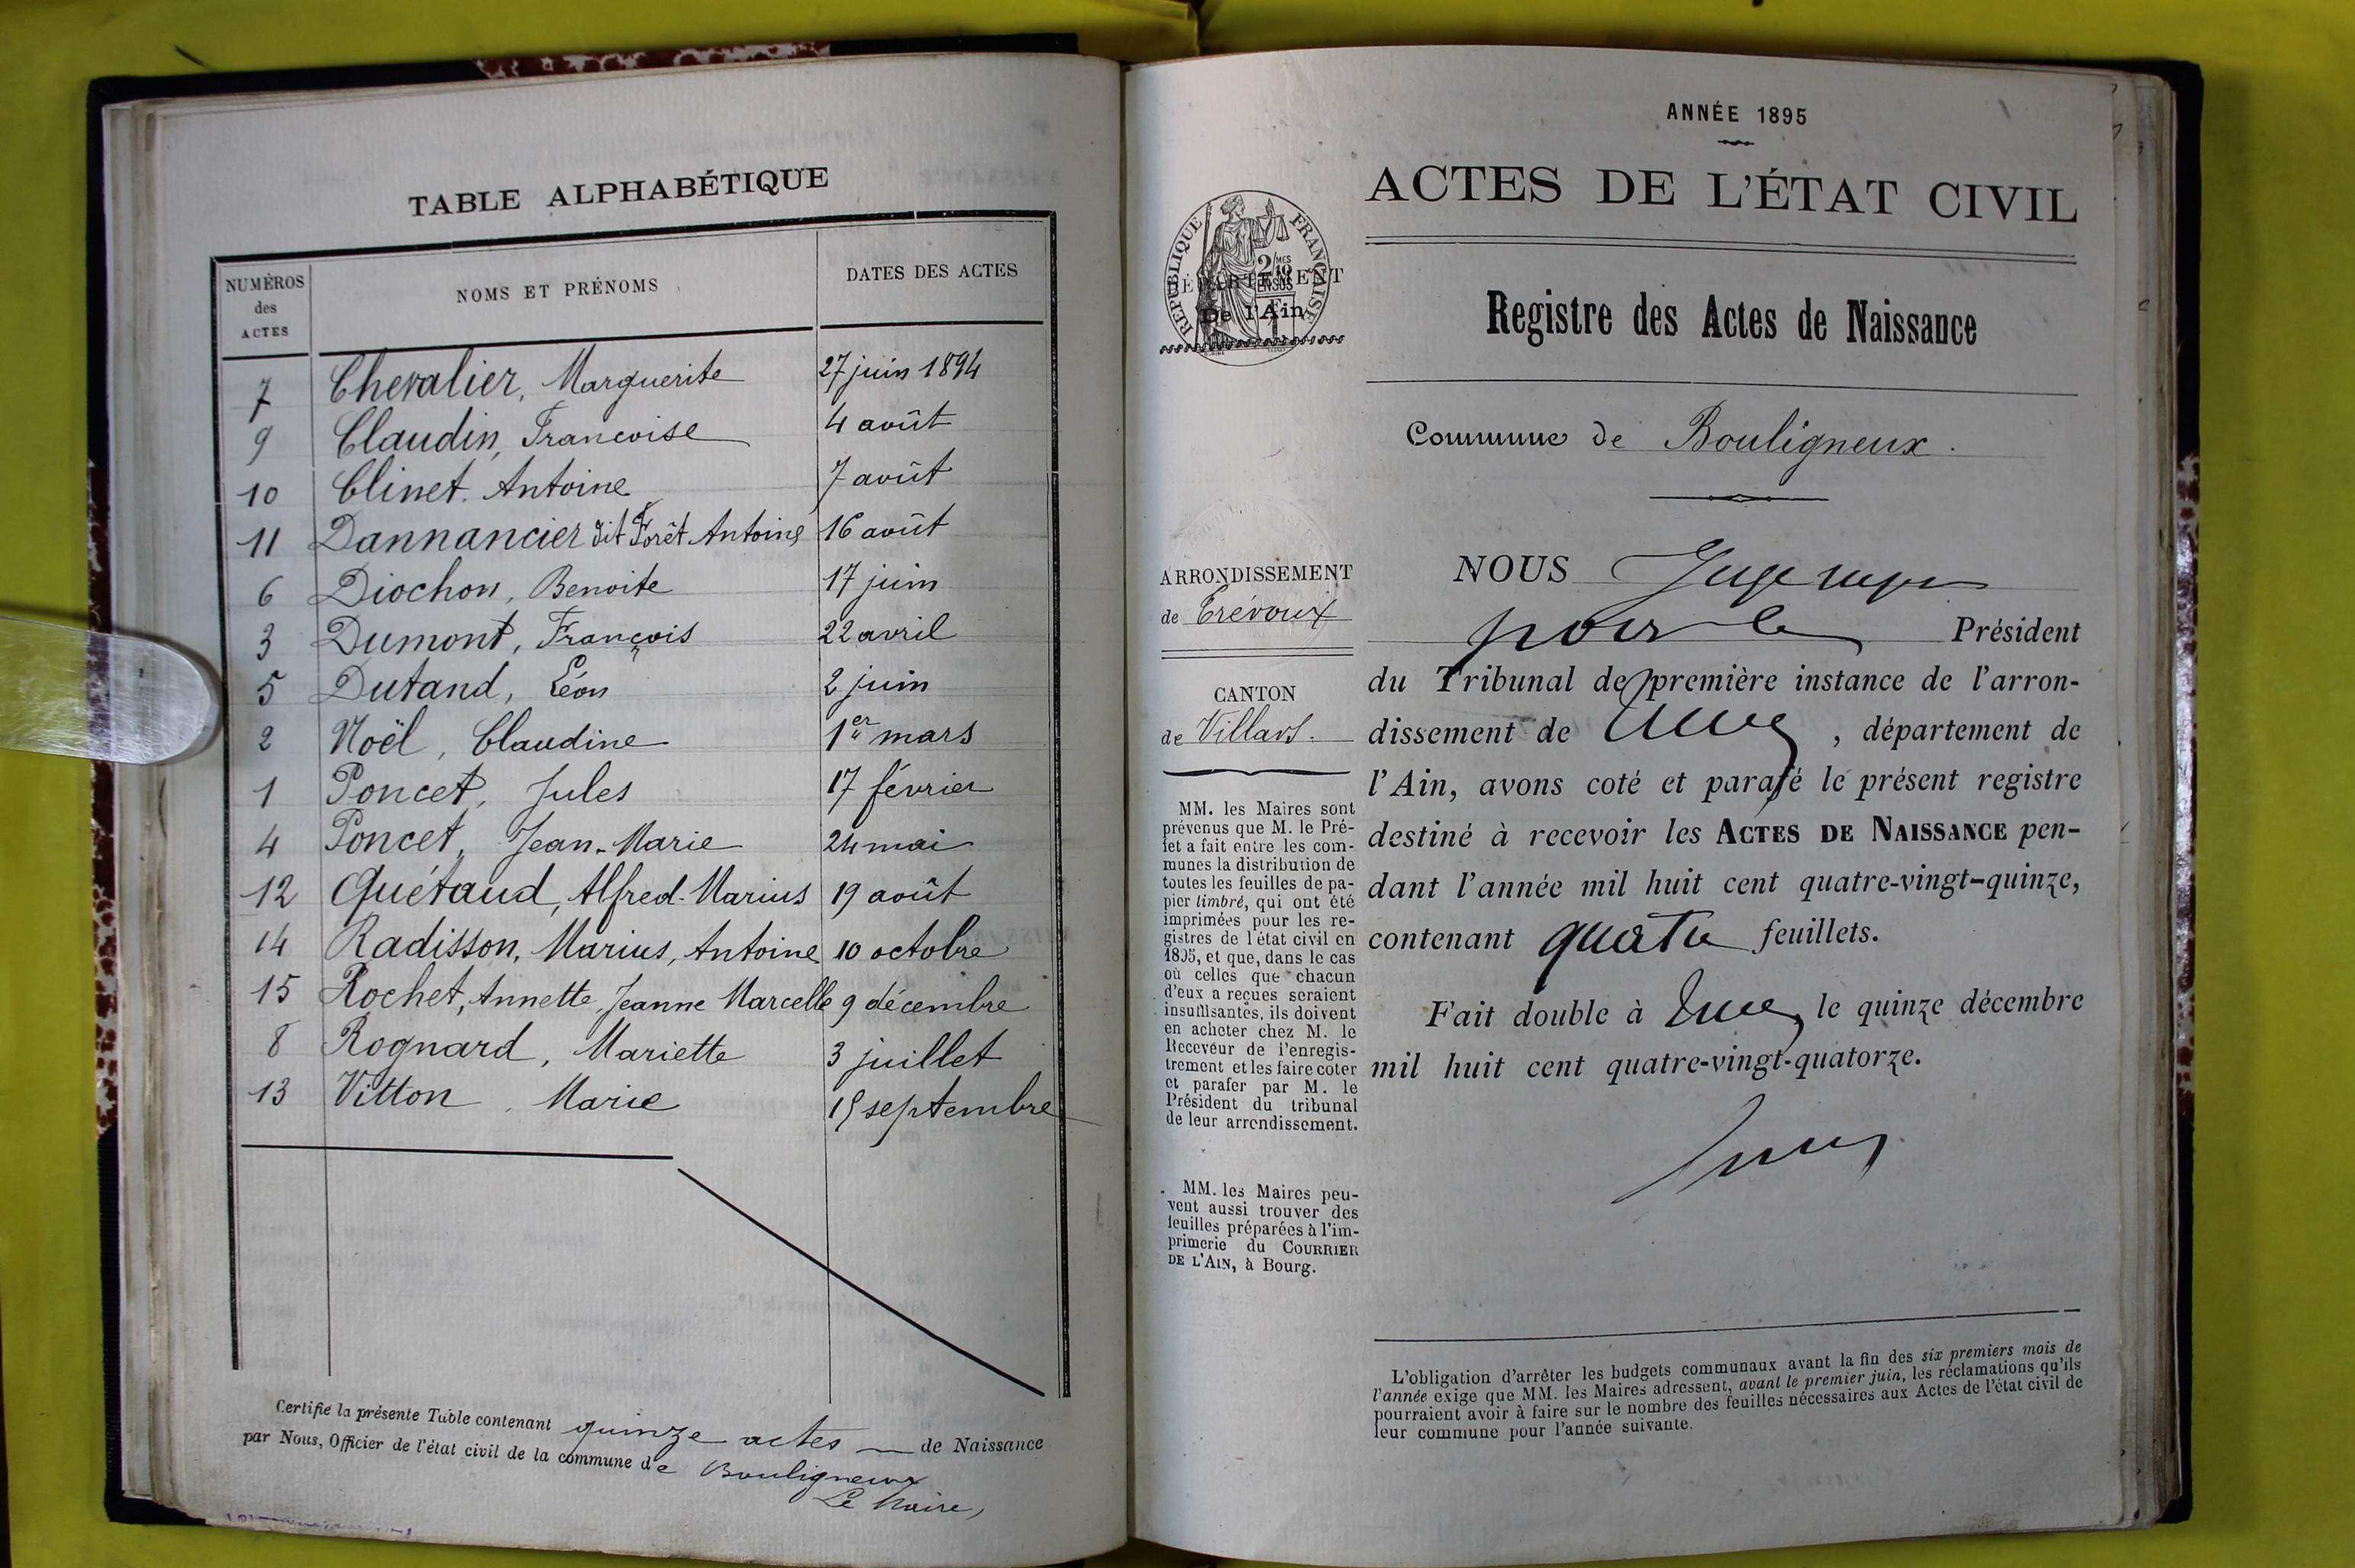 TABLE ALPHABÉTIQUE
NUMÉROS des ACTES
NOMS ET PRÉNOMS
DATES DES ACTES
7 Chevalier, Marguerite 27 juin 1894
9 Claudin, Francoise 4 août
10 Clinet. Antoine 7 août
11 Dannancier dit Forêt Antoine 16 août
6 Diochon, Benoite 17 juin
3 Dumont, François 22 avril
5 Dutand, Léon 2 juin
2 Noël, Claudine 1er mars
1 Poncet, Jules 17 février
4 Poncet, Jean-Marie 24 mai
12 Quétaud, Alfred-Marius 19 août
14 Radisson, Marius, Antoine 10 octobre
15 Rochet, Annette Jeanne Marcelle 9 décembre
8 Rognard, Mariette 3 juillet
13 Vitton, Marie 15 septembre
Certifié la présente Table contenant quinze actes de Naissance
par Nous, Officier de l'état civil de la commune de Bouligneux
Le Maire,
ANNÉE 1895
ACTES DE L'ÉTAT CIVIL
RÉPUBLIQUE FRANÇAISE
2/10 MES EN SUS
DÉPARTEMENT
De l'Ain
Registre des Actes de Naissance
Commune de Bouligneux.
ARRONDISSEMENT
de Trévoux
CANTON
de Villars.
MM. les Maires sont
prévenus que M. le Pré-
fet a fait entre les com-
munes la distribution de
toutes les feuilles de pa-
pier timbré, qui ont été
imprimées pour les re-
gistres de l'état civil en
1895, et que, dans le cas
où celles que chacun
d'eux a reçues seraient
insuffisantes, ils doivent
en acheter chez M. le
Receveur de l'enregis-
trement et les faire coter
et parafer par M. le
Président du tribunal
de leur arrondissement.
MM. les Maires peu-
vent aussi trouver des
feuilles préparées à l'im-
primerie du COURRIER
DE L'AIN, à Bourg.
NOUS Juge
pour le Président
du Tribunal de première instance de l'arron-
dissement de , département de
l'Ain, avons coté et parafé le présent registre
destiné à recevoir les ACTES DE NAISSANCE pen-
dant l'année mil huit cent quatre-vingt-quinze,
contenant quatre feuillets.
Fait double à le quinze décembre
mil huit cent quatre-vingt-quatorze.
L'obligation d'arrêter les budgets communaux avant la fin des six premiers mois de
l'année exige que MM. les Maires adressent, avant le premier juin, les réclamations qu'ils
pourraient avoir à faire sur le nombre des feuilles nécessaires aux Actes de l'état civil de
leur commune pour l'année suivante.